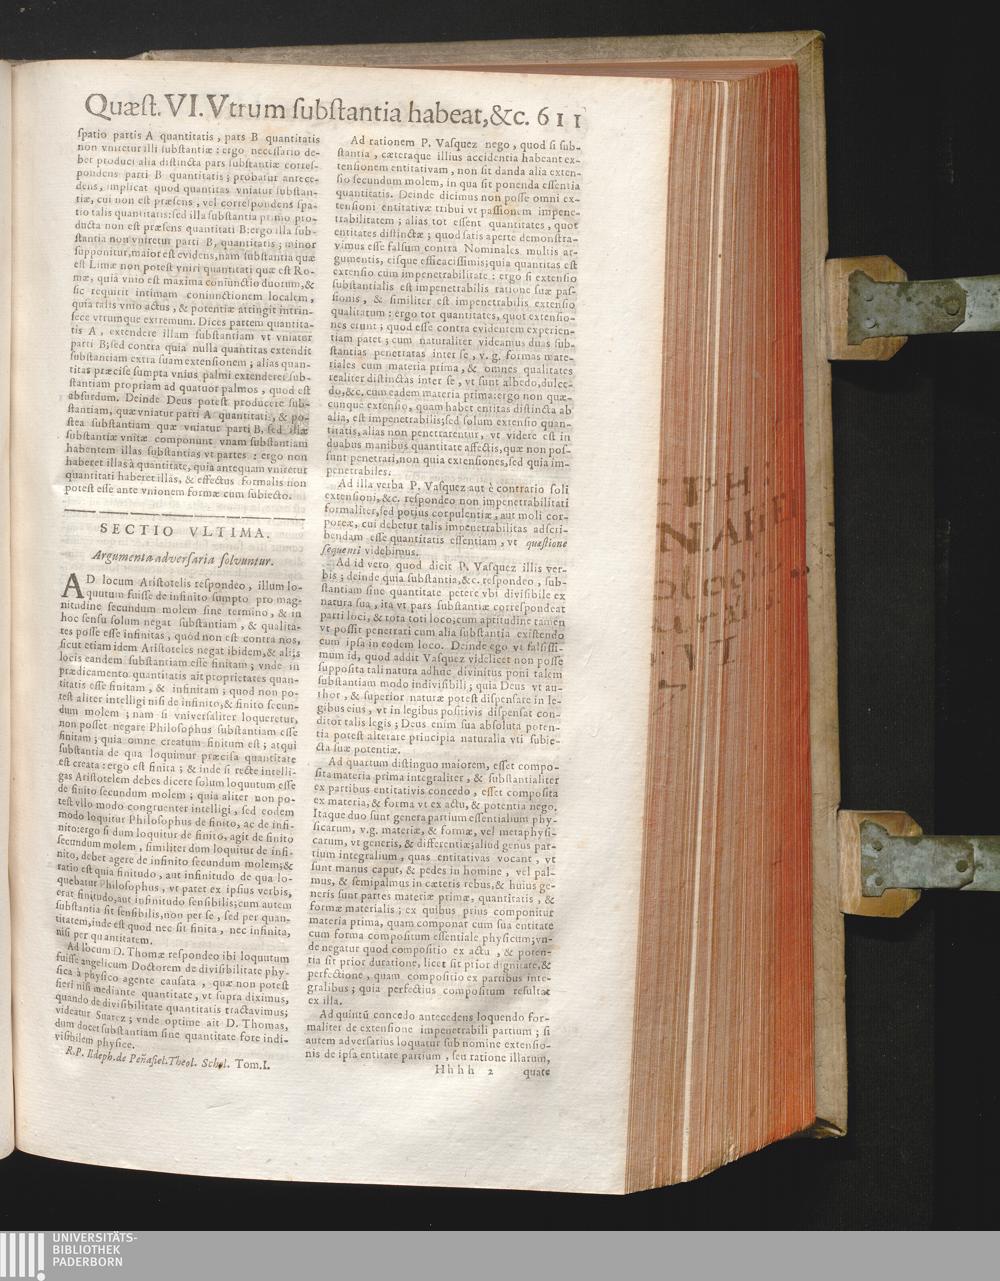 Quæst. VI. Vtrum substantia habeat,&c. 611
spatio partis A quantitatis, pars B quantitatis
non vniretur illi substantiæ: ergo necessario de-
bet produci alia distincta pars substantiæ corres-
pondens parti B quantitatis; probatur antece-
dens, implicat quod quantitas vniatur substan-
tiæ, cui non est præsens, vel correspondens spa-
tio talis quantitatis:sed illa substantia primo pro-
ducta non est præsens quantitati B:ergo illa sub-
stantia non vniretur parti B, quantitatis; minor
supponitur,maior est evidens,nam substantia quæ
est Limæ non potest vniri quantitati quæ est Ro-
mæ, quia vnio est maxima coniunctio duorum,&
sic requirit intimam coniunctionem localem,
quia talis vnio actus, & potentiæ attingit intrin-
sece vtrumque extremum. Dices partem quantita-
tis A, extendere illam substantiam vt vniatur
parti B;sed contra quia nulla quantitas extendit
substantiam extra suam extensionem; alias quan-
titas præcise sumpta vnius palmi extenderet sub-
stantiam propriam ad quatuor palmos, quod est
absurdum. Deinde Deus potest producere sub-
stantiam, quæ vniatur parti A quantitatis, & po-
stea substantiam quæ vniatur parti B, sed istiæ
substantiæ vnitæ componunt vnam substantiam
habentem illas substantias vt partes: ergo non
haberet illas à quantitate, quia antequam vniretur
quantitati haberet illas, & effectus formalis non
potest esse ante vnionem formæ cum subiecto.
SECTIO VLTIMA.
Argumenta adversaria solvuntur.
AD locum Aristotelis respondeo, illum lo-
quutum fuisse de infinito sumpto pro mag-
nitudine secundum molem sine termino, & in
hoc sensu solum negat substantiam, & qualita-
tes posse esse infinitas, quod non est contra nos,
sicut etiam idem Aristoteles negat ibidem,& aliis
locis eandem substantiam esse finitam; vnde in
prædicamento quantitatis ait proprietates quan-
titatis esse finitam, & infinitam; quod non po-
test aliter intelligi nisi de infinito,& finito secun-
dum molem; nam si vniversaliter loqueretur,
non posset negare Philosophus substantiam esse
finitam; quia omne creatum finitum est; atqui
substantia de qua loquimur præcisa quantitate
est creata: ergo est finita; & inde si recte intelli-
gas Aristotelem debes dicere solum loquutum esse
de finito secundum molem; quia aliter non po-
test vllo modo congruenter intelligi, sed eodem
modo loquitur Philosophus de finito, ac de infi-
nito:ergo si dum loquitur de finito, agit de finito
secundum molem, similiter dum loquitur de infi-
nito, debet agere de infinito secundum molem;&
ratio est quia finitudo, aut infinitudo de qua lo-
quebatur Philosophus, vt patet ex ipsius verbis,
erat finitudo,aut infinitudo sensibilis;cum autem
substantia sit sensibilis,non per se, sed per quan-
titatem,inde est quod nec sit finita, nec infinita,
nisi per quantitatem.
Ad locum D. Thomæ respondeo ibi loquutum
fuisse angelicum Doctorem de divisibilitate phy-
sica à physico agente causata, quæ non potest
fieri nisi mediante quantitate, vt supra diximus,
quando de divisibilitate quantitatis tractavimus;
videatur Suarez; vnde optime ait D. Thomas,
dum docet substantiam sine quantitate fore indi-
visibilem physice.
R.P. Ildeph.de Peñafiel.Theol. Schol. Tom.I.
Ad rationem P. Vasquez nego, quod si sub-
stantia, cæteraque illius accidentia habeant ex-
tensionem entitativam, non sit danda alia exten-
sio secundum molem, in qua sit ponenda essentia
quantitatis. Deinde dicimus non posse omni ex-
tensioni entitativæ tribui vt passionem impene-
trabilitatem; alias tot essent quantitates, quot
entitates distinctæ; quod satis aperte demonstra-
vimus esse falsum contra Nominales multis ar-
gumentis, eisque efficacissimis;quia quantitas est
extensio cum impenetrabilitate: ergo si extensio
substantialis est impenetrabilis ratione suæ pas-
sionis, & similiter est impenetrabilis extensio
qualitatum: ergo tot quantitates, quot extensio-
nes erunt; quod esse contra evidentem experien-
tiam patet; cum naturaliter videamus duas sub-
stantias penetratas inter se, v. g. formas mate-
riales cum materia prima, & omnes qualitates
realiter distinctas inter se, vt sunt albedo,dulce-
do,&c. cum eadem materia prima:ergo non quæ-
cunque extensio, quam habet entitas distincta ab
alia, est impenetrabilis;sed solum extensio quan-
titatis,alias non penetrarentur, vt videre est in
duabus manibus quantitate affectis,quæ non pos-
sunt penetrari,non quia extensiones,sed quia im-
penetrabiles.
Ad illa verba P. Vasquez aut è contrario soli
extensioni,&c. respondeo non impenetrabilitati
formaliter,sed potius corpulentiæ, aut moli cor-
poreæ, cui debetur talis impenetrabilitas adscri-
bendam esse quantitatis essentiam, vt quæstione
sequenti videbimus.
Ad id vero quod dicit P. Vasquez illis ver-
bis; deinde quia substantia,&c. respondeo, sub-
stantiam sine quantitate petere vbi divisibile ex
natura sua, ita vt pars substantiæ correspondeat
parti loci, & tota toti loco;cum aptitudine tamen
vt possit penetrari cum alia substantia existendo
cum ipsa in eodem loco. Deinde ego vt falsissi-
mum id, quod addit Vasquez videlicet non posse
supposita tali natura adhuc divinitus poni talem
substantiam modo indivisibili; quia Deus vt au-
thor, & superior naturæ potest dispensare in le-
gibus eius, vt in legibus positivis dispensat con-
ditor talis legis; Deus enim sua absoluta poten-
tia potest alterare principia naturalia vti subie-
cta suæ potentiæ.
Ad quartum distinguo maiorem, esset compo-
sita materia prima integraliter, & substantialiter
ex partibus entitativis concedo, esset composita
ex materia, & forma vt ex actu, & potentia nego.
Itaque duo sunt genera partium essentialium phy-
sicarum, v.g. materiæ, & formæ, vel metaphysi-
carum, vt generis, & differentiæ;aliud genus par-
tium integralium, quas entitativas vocant, vt
sunt manus caput, & pedes in homine, vel pal-
mus, & semipalmus in cæteris rebus,& huius ge-
neris sunt partes materiæ primæ, quantitatis, &
formæ materialis; ex quibus prius componitur
materia prima, quam componat cum sua entitate
cum forma compositum essentiale physicum;vn-
de negatur quod compositio ex actu, & poten-
tia sit prior duratione, licet sit prior dignitate,&
perfectione, quam compositio ex partibus inte-
gralibus; quia perfectius compositum resultat
ex illa.
Ad quintũ concedo antecedens loquendo for-
maliter de extensione impenetrabili partium; si
autem adversatius loquatur sub nomine extensio-
nis de ipsa entitate partium, seu ratione illarum,
Hhhh 2 quate
UNIVERSITÄTS-
BIBLIOTHEK
PADERBORN